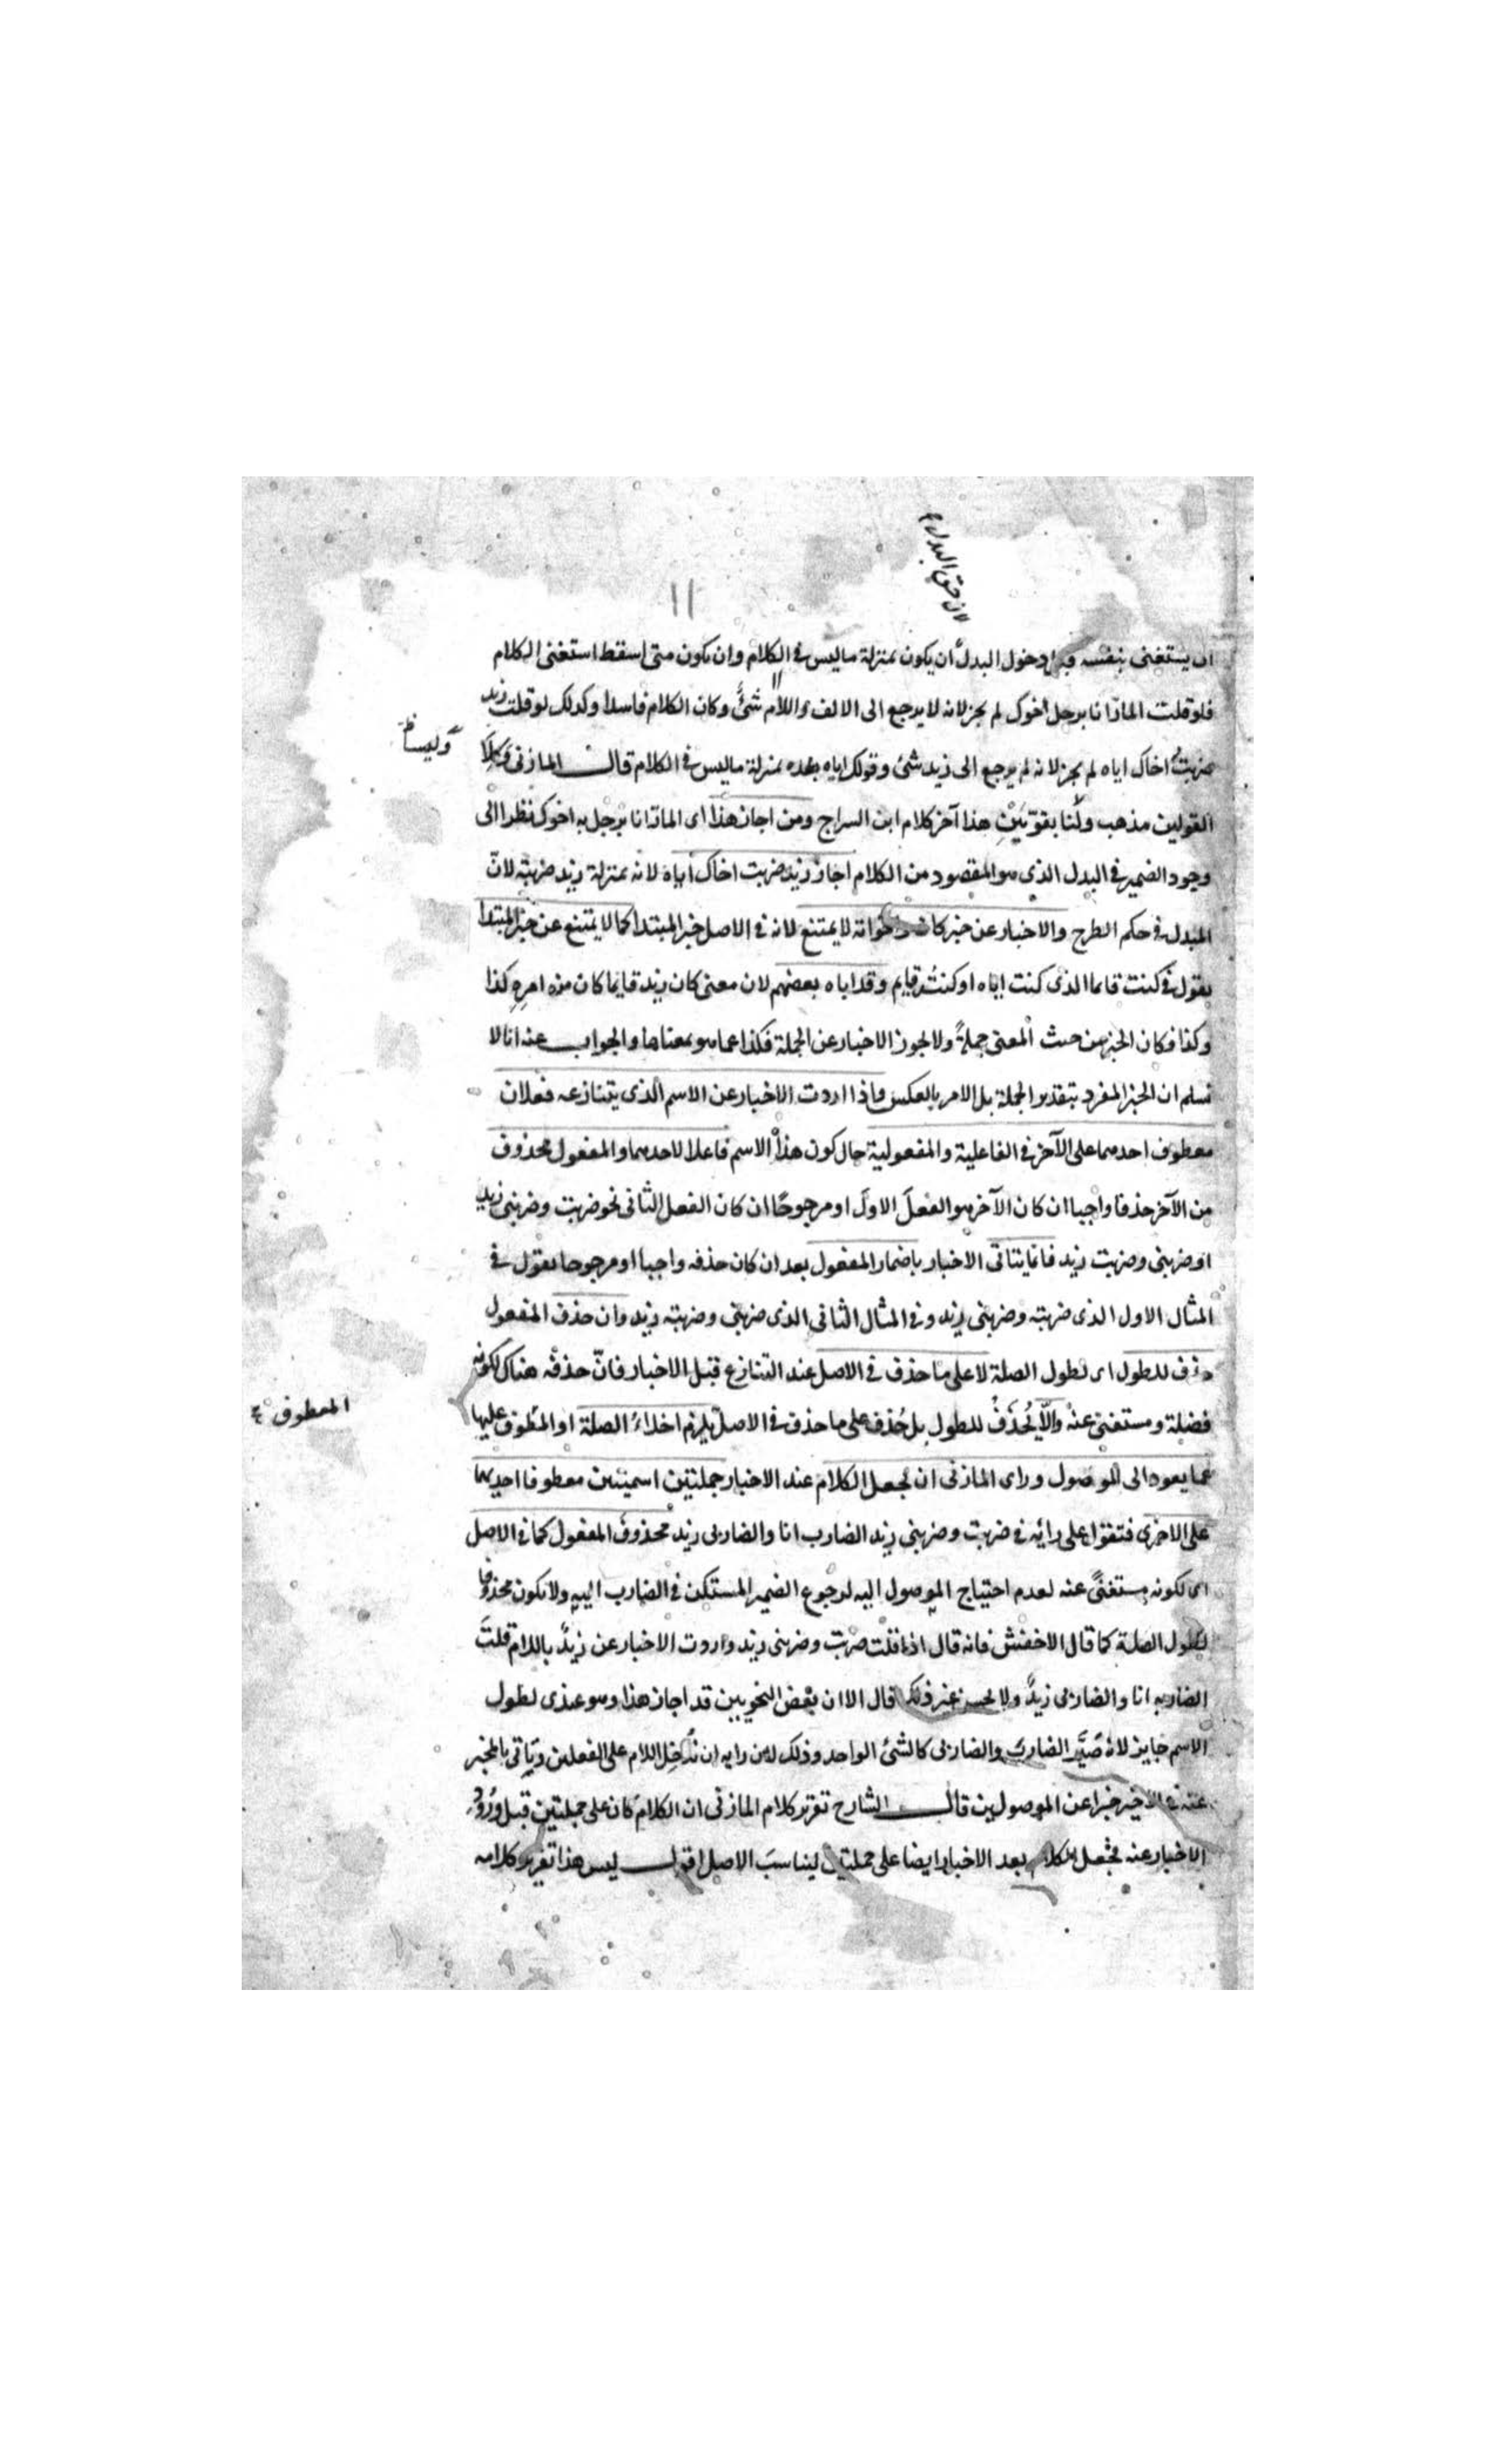 لان حق البدل
١١
ان يستغنى بنفسه قبل دخول البدل ان يكون بمنزلة ما ليس في الكلام وان يكون متى اسقط استغنى الكلام
فلو قلت المارّ انا برجل اخوك لم يجز لانه لا يرجع الى الالف واللام شئ وكان الكلام فاسدا وكذلك لو قلت زيد
ضربتُ اخاك اياه لم يجز لانه لم يرجع الى زيد شئ وقولك اياه بعده بمنزلة ما ليس في الكلام قال المازنى وكلا
وليسا
القولين مذهب ولنا بقويّين هذا آخر كلام ابن السراج ومن اجاز هذا اى المارّ انا برجل به اخوك نظرا الى
وجود الضمير في البدل الذي هو المقصود من الكلام اجاز زيد ضربت اخاك اياه لانه بمنزلة زيد ضربته لانّ
المبدل في حكم الطرح والاخبار عن خبر كان واخواته لا يمتنع لانه في الاصل خبر المبتدا كما لا يمتنع عن خبر المبتدا
يقول في كنت قائما الذى كنت اياه او كنتُه قايم وقد اباه بعضهم لان معنى كان زيد قايما كان من امره كذا
وكذا فكان الخبر من حيث المعنى جملةً ولا يجوز الاخبار عن الجملة فكذا عما هو بمعناها والجواب عنه انا لا
نسلم ان الخبر المفرد بتقدير الجملة بل الامر بالعكس واذا اردت الاخبار عن الاسم الذى يتنازعه فعلان
معطوف احدهما على الآخر في الفاعلية والمفعولية حال كون هذا الاسم فاعلا لاحدهما والمفعول محذوف
من الآخر حذفا واجبا ان كان الآخر هو الفعلَ الاولَ او مرجوحًا ان كان الفعل الثانى نحو ضربت وضربنى زيد
او ضربنى وضربت زيد فانما يتاتى الاخبار باضمار المفعول بعد ان كان حذفه واجبا او مرجوحا يقول في
المثال الاول الذى ضربته وضربنى زيد وفي المثال الثانى الذى ضربنى وضربته زيد وان حذف المفعول
حذف للطول اى لطول الصلة لا على ما حذف في الاصل عند التنازع قبل الاخبار فانّ حذفه هناك لكونه
فضلة ومستغنى عنه والّا يُحذَفْ للطول بل حُذف على ما حذف في الاصل يلزم اخلاءُ الصلة او المعطوف عليها
المعطوف
عما يعود الى الموصول وراى المازنى ان يجعل الكلام عند الاخبار جملتين اسميتين معطوفا احديهما
على الاخرى فتقول على رايه في ضربت وضربنى زيد الضارب انا والضاربى زيد محذوفَ المفعول كما في الاصل
اى لكونه مستغنىً عنه لعدم احتياج الموصول اليه لرجوع الضمير المستكن في الضارب اليه ولا يكون محذوفا
لطول الصلة كما قال الاخفش فانه قال اذا قلت ضربت وضربنى زيد واردت الاخبار عن زيدٍ باللام قلتَ
الضاربه انا والضاربى زيدٌ ولا يحسن غير ذلك قال الا ان بعض النحويين قد اجاز هذا وهو عندى لطول
الاسم جايز لانه صَيَّر الضارب والضاربى كالشئ الواحد وذلك لان رايه ان تُدخِل اللام على الفعلين وتاتى بالمخبر
عنه في الاخير خبرا عن الموصولين قال الشارح تقرير كلام المازنى ان الكلام كان على جملتين قبل ورُود
الاخبار عنه فجُعل الكلام بعد الاخبار ايضا على جملتين ليناسبَ الاصل اقول ليس هذا تقرير كلامه